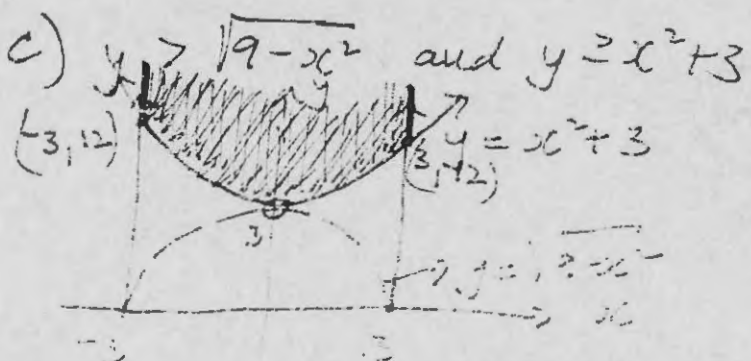 c) y > √(9-x²) and y ≥ x²+3
y
(-3,12)
y = x²+3
(3,12)
3
y = √
x
-3 3